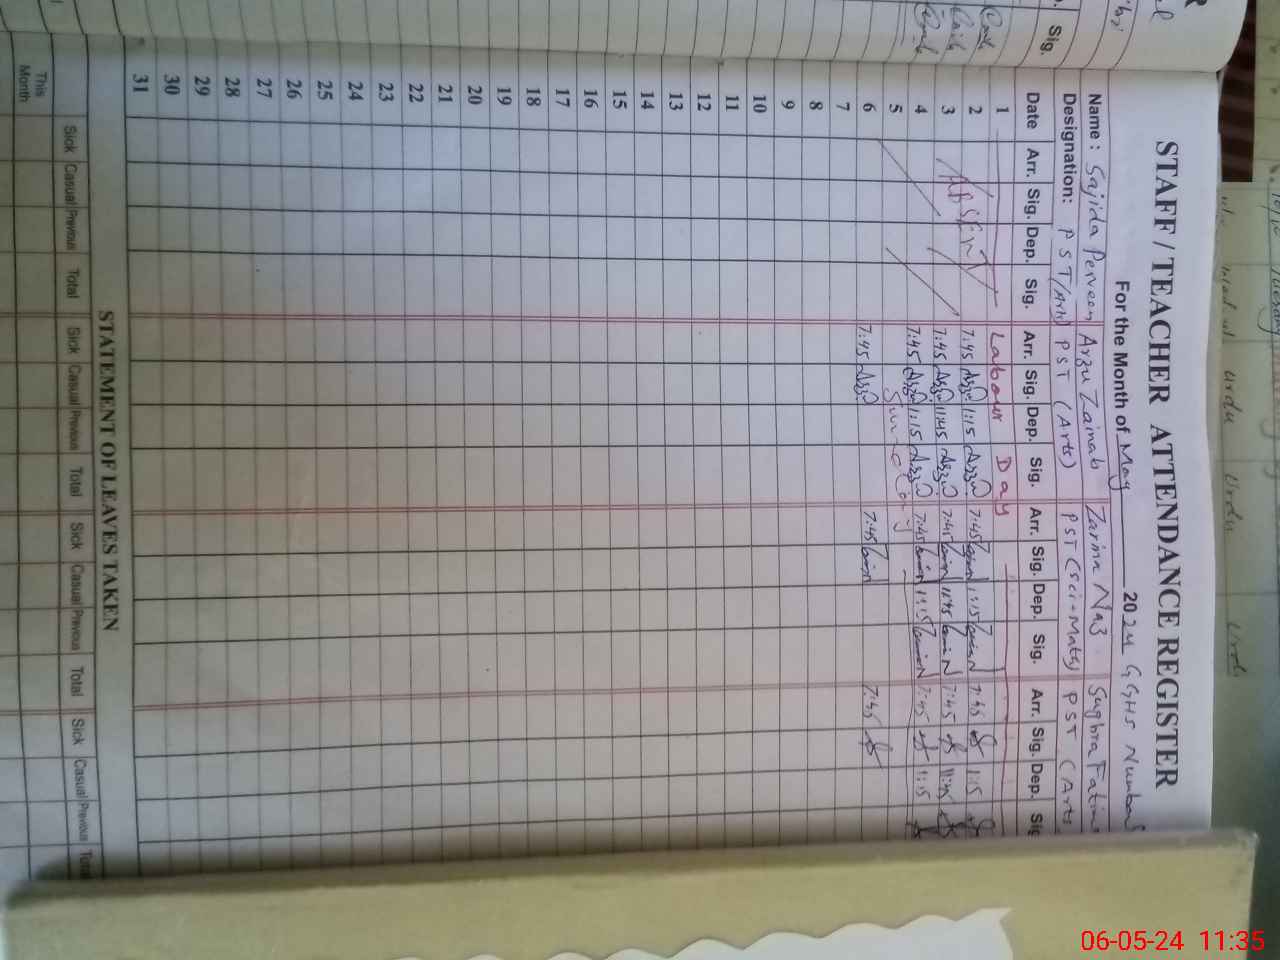 STAFF / TEACHER ATTENDANCE REGISTER
For the Month of May 2024 GGHS Number
Name : Sajida Perveen Arzu Zainab Zarina Naz Sughra Fatima
Designation: PST (Arts) PST (Arts) PST (Sci-Math) PST (Arts
Date Arr. Sig. Dep. Sig. Arr. Sig. Dep. Sig. Arr. Sig. Dep. Sig. Arr. Sig. Dep. Sig
1 Labour Day
2 7:45 Arzu 1:15 Arzu 7:45 1:15 7:45 1:15
3 ABSENT 7:45 Arzu 11:45 Arzu 7:45 11:45 7:45 11:45
4 7:45 Arzu 1:15 Arzu 7:45 1:15 7:45 1:15
5 Sunday
6 7:45 Arzu 7:45 7:45
7
8
9
10
11
12
13
14
15
16
17
18
19
20
21
22
23
24
25
26
27
28
29
30
31
STATEMENT OF LEAVES TAKEN
Sick Casual Previous Total Sick Casual Previous Total Sick Casual Previous Total Sick Casual Previous Total
This Month
Sig.
Urdu Urdu
06-05-24 11:35